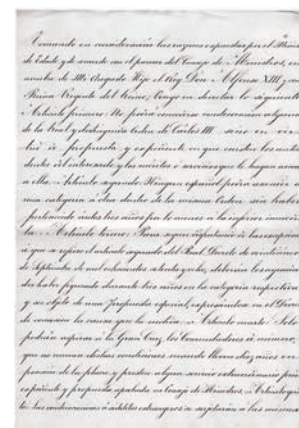 Tomando en consideración las razones expuestas por el Ministro
de Estado y de acuerdo con el parecer del Consejo de Ministros, en
nombre de Mi Augusto Hijo el Rey Don Alfonso XIII y como
Reina Regente del Reino; Vengo en decretar lo siguiente
Artículo primero: No podrá concederse condecoración alguna
de la Real y distinguida Orden de Carlos III sino en
á propuesta y expediente en que consten los
del interesado y los servicios ó acciones que le hagan
á ella. Artículo segundo: Ningun español podrá ascender de
una categoría á otra dentro de la misma Orden sin haber
pertenecido antes tres años por lo menos a la inferior
Artículo tercero: Para
á que se refiere el artículo segundo del Real Decreto de
de Septiembre de mil ochocientos ochenta y ocho, deberán los
haber figurado durante tres años en la categoría respectiva
y ser objeto de una propuesta especial, expresándose en el
la causa que la motiva. Artículo cuarto: Solo
podrán aspirar á la Gran Cruz, los Comendadores de número,
que no reunan dichas condiciones, cuando lleven diez años en
posesión de la placa, y presten algun servicio extraordinario previo
expediente y propuesta aprobada en Consejo de Ministros. Artículo
las condecoraciones á súbditos extranjeros se á las mismas